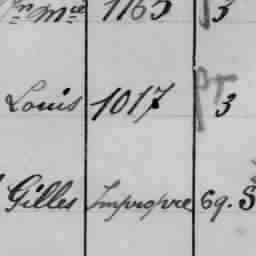 1165 3
Louis 1017 PT 3
Gilles Impropre 69. S